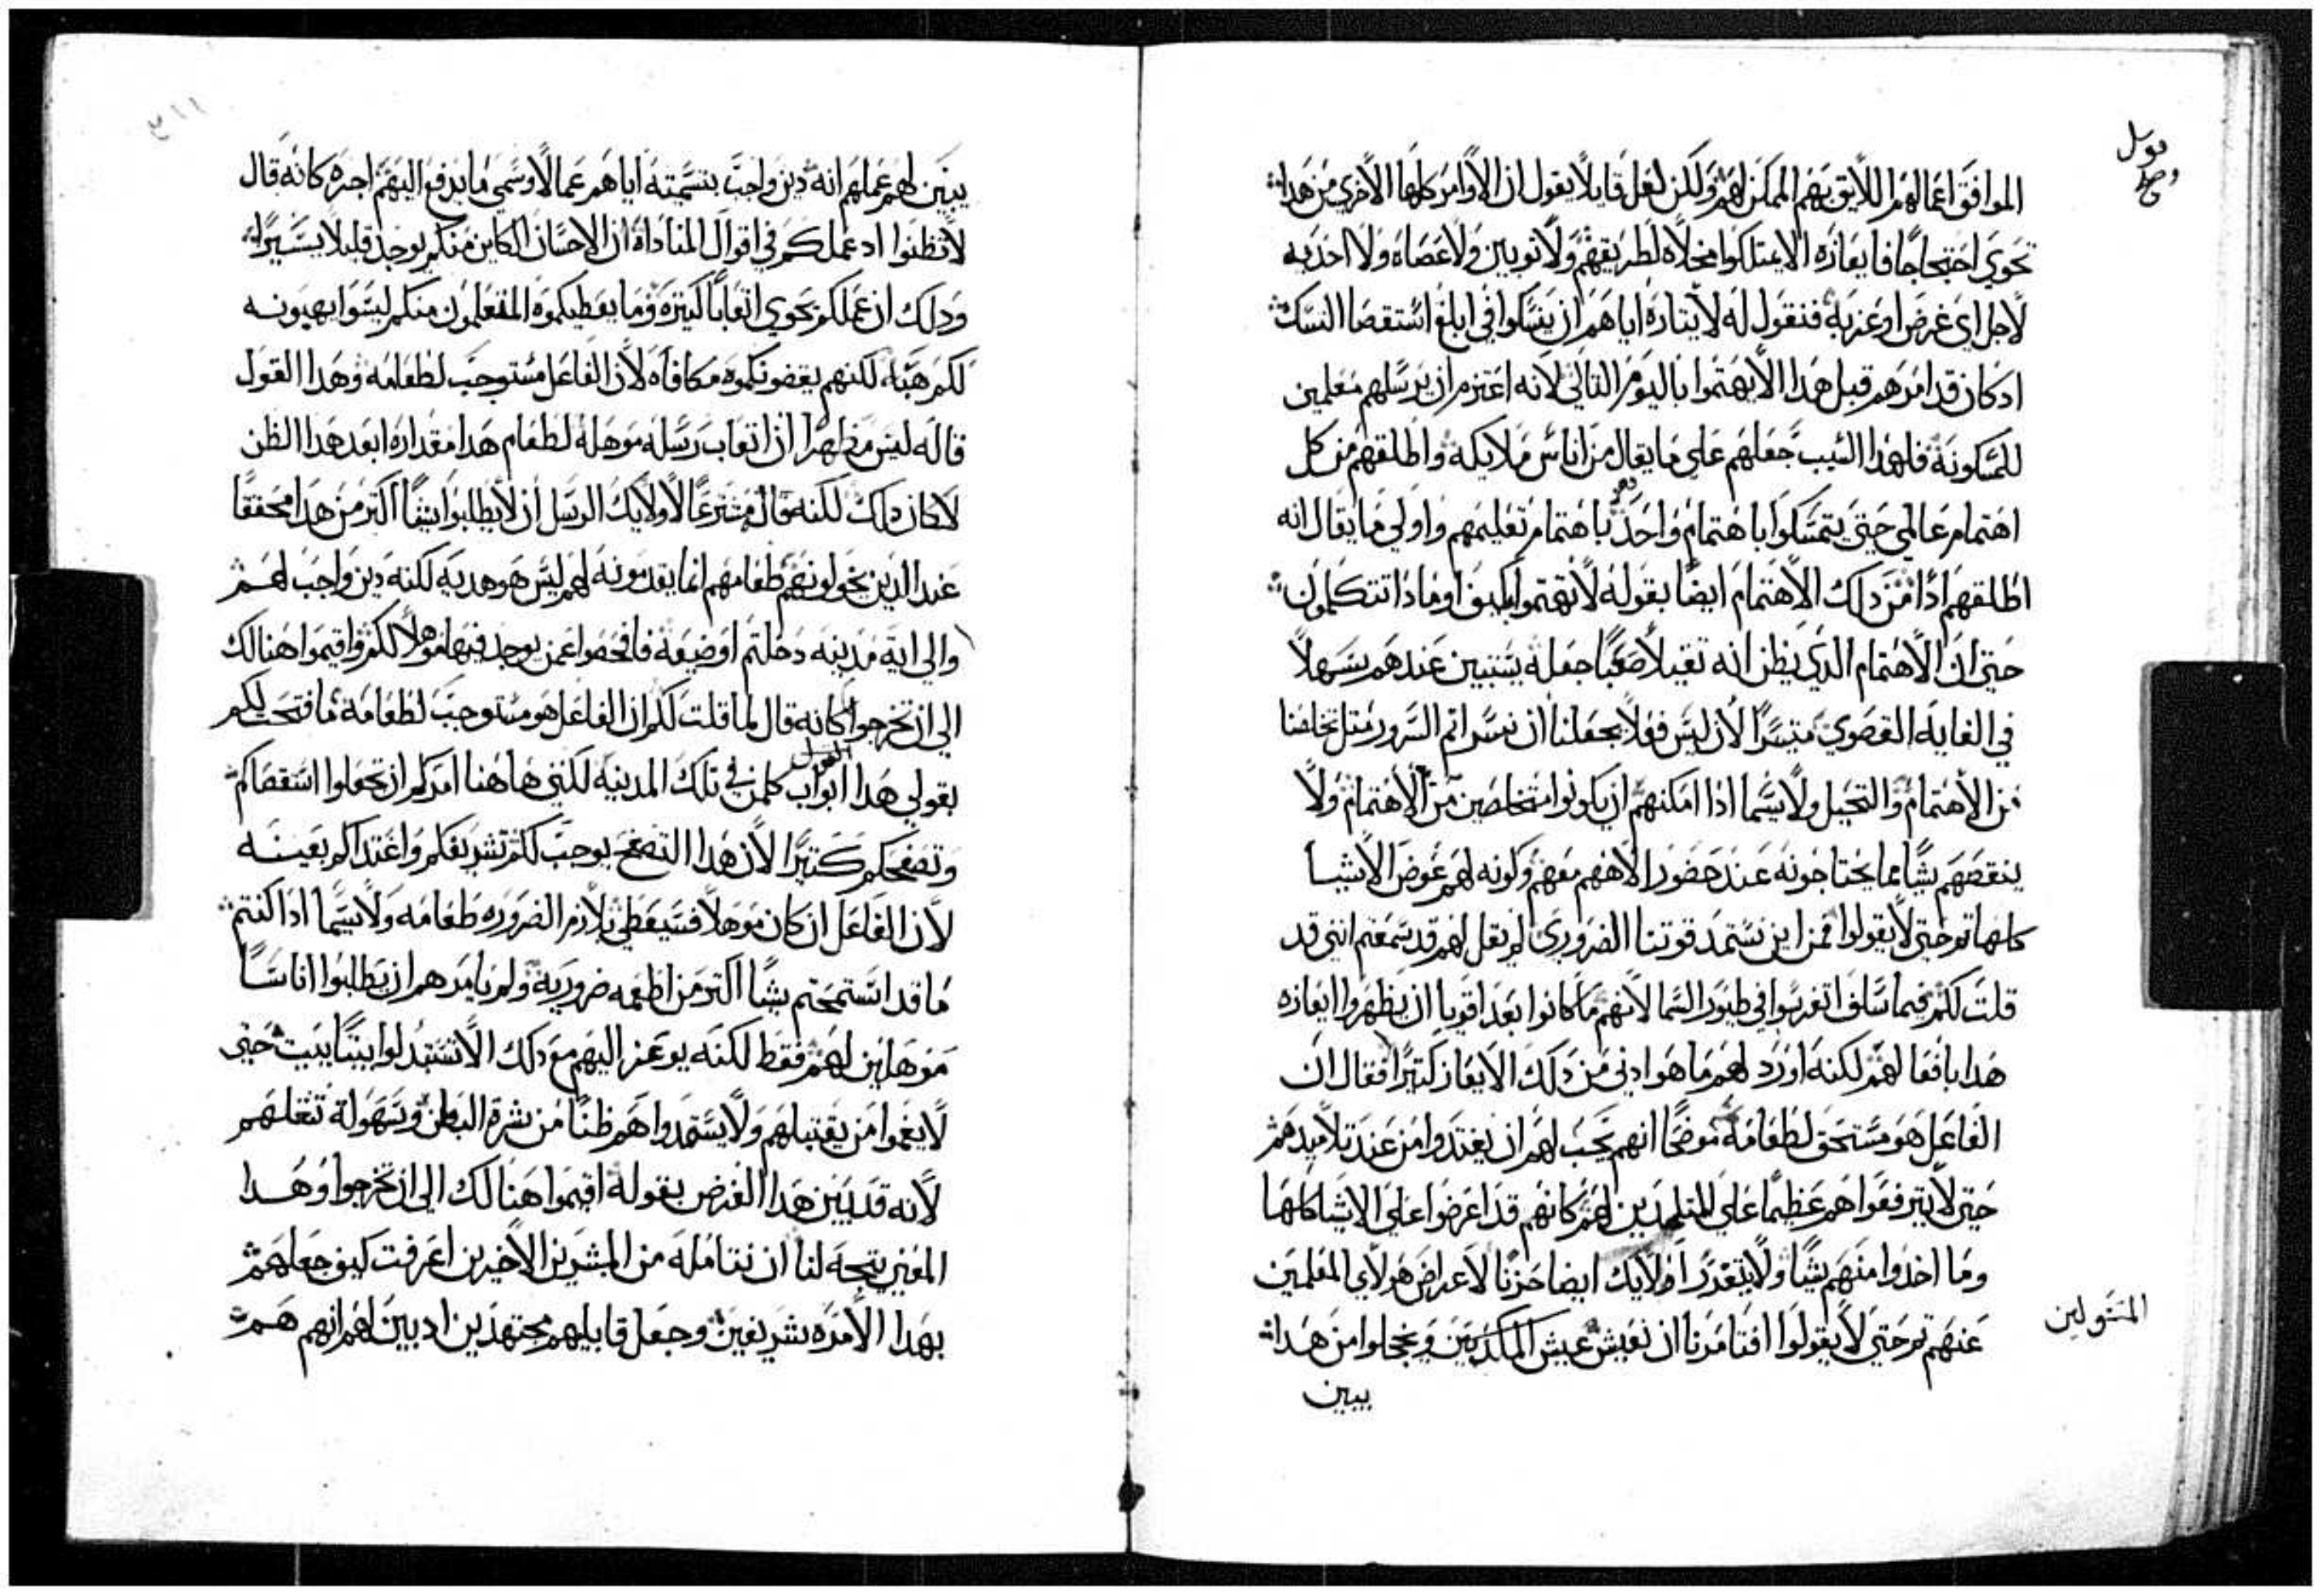 قوبل
وصح
الموافق اعمالهم اللايق بهم الممكن لهم ولكن لعل قايلا يقول ان الاوامر كلها الاخري من هذا
تحوي احتجاجا فايعازه الا يمتلكوا مخلاه لطريقهم ولا ثوبين ولا عصاه ولا احذيه
لاجل اي غرض اوعز به فنقول له لايثاره اياهم ان ينسكوا في ابلغ استقصا النسك
اد كان قد امرهم قبل هدا الا يهتموا باليوم التاني لانه اعتزم ان يرسلهم معلمين
للمسكونة فلهدا السبب جعلهم علي ما يقال من اناس ملايكة واطلقهم من كل
اهتمام عالمي حتي يتمسكوا باهتمام واحد باهتمام تعليمهم واولي ما يقال انه
اطلقهم ادا من دلك الاهتمام ايضا بقوله لا تهتموا كيف او مادا تتكلمون
حتي ان الاهتمام الدي يظن انه تقيلا صعبا جعله يستبين عندهم سهلا
في الغايه القصوي متيسرا لان ليس فعلا يجعلنا ان نسر اتم السرور متل تخلصنا
من الاهتمام والتحيل ولا سيما ادا امكنهم ان يكونوا متخلصين من الاهتمام ولا
ينقصهم شيا مما يحتاجونه عند حضور الاههم معهم وكونه لهم عوض الاشيا
كلها تم حتي لا يقولوا فمن اين نستمد قوتنا الضروري لم يقل لهم قد سمعتم انني قد
قلت لكم فيما سلف اتفرسوا في طيور السما لانهم ما كانوا بعد اقويا ان يظهروا ايعازه
هدا بافعالهم لكنه اورد لهم ما هو ادني من دلك الايعاز كتيرا فقال ان
الفاعل هو مستحق لطعامه موضحا انهم يجب لهم ان يغتدوا من عند تلاميدهم
حتي لا يترفعوا هم عظيما علي المتلمدين لهم كانهم قد اعرضوا علي الاشيا كلها
وما اخدوا منهم شيا ولا يتعدر اولايك ايضا حزنا لاعراض هولاي المعلمين
عنهم تم حتي لا يقولوا افتامرنا ان نعيش عيش المكديين ويخجلوا من هدا
المتسولين
يبين
يبين لهم عملهم انه دين واجب بتسميته اياهم عمالا وسمي ما يدفع اليهم اجره كانه قال
لا تظنوا اد عملكم في اقوال المناداة ان الاحسان الكاين منكم يوجد قليلا يسيرا
ودلك ان عملكم يحوي اتعابا كتيره وما يعطيكموه المتعلمون منكم ليسوا يهبونه
لكم هبة لكنهم يعضونكموه مكافاه لان الفاعل مستوجب لطعامه وهدا القول
قاله ليس مظهرا ان اتعاب رسله موهلة لطعام هدا مقداره ابعد هدا الظن
لا كان دلك لكنه قال مشترعا لاولايك الرسل ان لا يطلبوا شيا اكتر من هدا محققا
عند الدين يخولونهم طعامهم انما يقدمونه لهم ليس هو هديه لكنه دين واجب لهم
والي اية مدينه دخلتم او ضيعة فافحصوا عمن يوجد فيها موهلا لكم واقيموا هنالك
الي ان تخرجوا كانه قال لما قلت لكم ان الفاعل هو مستوجب لطعامه ما فتحت لكم
بقولي هدا القول ابواب كلمن في تلك المدينه لكنني هاهنا امركم ان تجعلوا استقصاكم
وتصفحكم كتيرا لان هدا التصفح يوجب لكم تشريفكم واغتداكم بعينه
لان الفاعل ان كان موهلا فسيعطي بلازم الضروره طعامه ولا سيما ادا كنتم
ما قد استمحتم شيا اكتر من اطعمه ضرورية ولم يامرهم ان يطلبوا اناسا
موهلين لهم فقط لكنه يوعز اليهم مع دلك الا تستبدلوا بيتا ببيت حتي
لا يغموا من يقتبلهم ولا يستمدوا هم ظنا من شره البطن وسهولة تنقلهم
لانه قد يبين هدا الغرض بقوله اقيموا هنالك الي ان تخرجوا وهدا
المعني يتجه لنا ان نتامله من المبشرين الاخيرين اعرفت كيف جعلهم
بهدا الامره شريفين وجعل قابليهم مجتهدين اد يبين لهم انهم هم